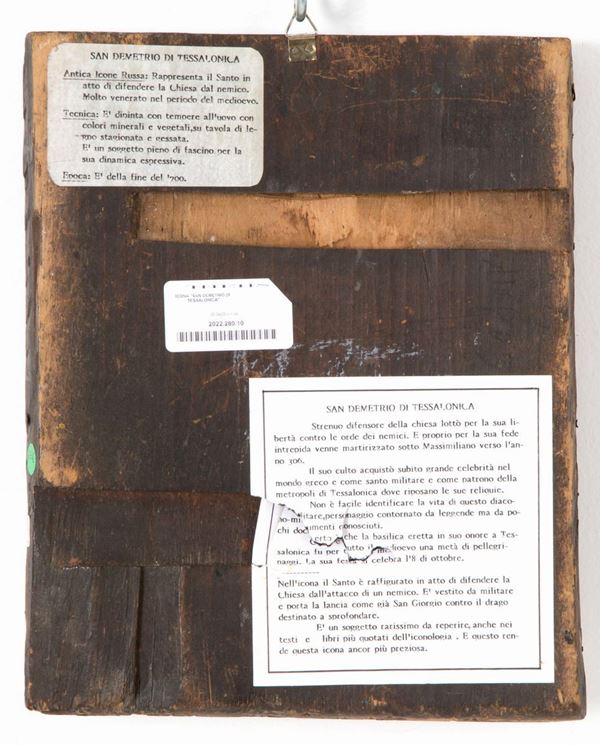 SAN DEMETRIO DI TESSALONICA
Antica Icone Russa: Rappresenta il Santo in
atto di difendere la Chiesa dal nemico.
Molto venerato nel periodo del medioevo.
Tecnica: E' dipinta con tempere all'uovo con
colori minerali e vegetali,su tavola di le-
gno stagionata e gessata.
E' un soggetto pieno di fascino per la
sua dinamica espressiva.
Epoca: E' della fine del '700.
ICONA "SAN DEMETRIO DI
TESSALONICA"
2022.280.10
SAN DEMETRIO DI TESSALONICA
Strenuo difensore della chiesa lottò per la sua li-
bertà contro le orde dei nemici. E proprio per la sua fede
intrepida venne martirizzato sotto Massimiliano verso l'an-
no 306.
Il suo culto acquistò subito grande celebrità nel
mondo greco e come santo militare e come patrono della
metropoli di Tessalonica dove riposano le sue reliquie.
Non è facile identificare la vita di questo diaco-
no-militare,personaggio contornato da leggende ma da po-
chi documenti conosciuti.
certo che la basilica eretta in suo onore a Tes-
salonica fu per tutto il medioevo una metà di pellegri-
naggi. La sua festa si celebra l'8 di ottobre.
Nell'icona il Santo è raffigurato in atto di difendere la
Chiesa dall'attacco di un nemico. E' vestito da militare
e porta la lancia come già San Giorgio contro il drago
destinato a sprofondare.
E' un soggetto rarissimo da reperire, anche nei
testi e libri più quotati dell'iconologia . E questo ren-
de questa icona ancor più preziosa.